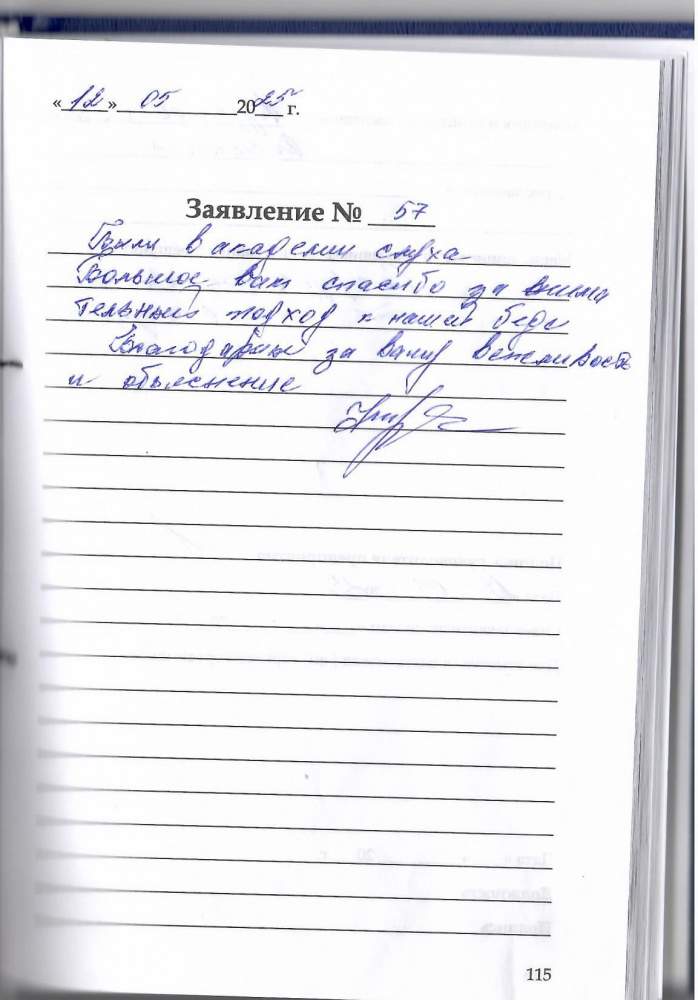 «12» 05 2025 г.
Заявление № 57
Были в академии слуха
Большое вам спасибо за внима
тельный подход к нашей беде
Благодарим за вашу вежливость
и объяснение
115